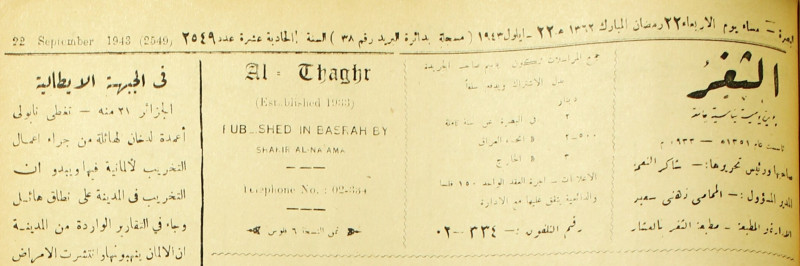 بصرة – مساء يوم الاربعاء ٢٢ رمضان المبارك ١٣٦٢ هـ ٢٢ – ايلول ١٩٤٣ ( مسجلة بدائرة البريد رقم ٣٨ ) السنة الحادية عشرة عدد ٢٥٤٩
22 September 1943 (2549)
الثغر
يومية سياسية جامعة
تأسست عام ١٣٥١ هـ – ١٩٣٣ م
صاحبها ورئيس تحريرها: – شاكر النعمة
المدير المسؤول: – المحامي زهدي سعيد
الادارة والمطبعة – مطبعة الثغر بالعشار
جميع المراسلات تكون باسم صاحب الجريدة
بدل الاشتراك ويدفع سلفاً
دينار
٢ في البصرة عن سنة كاملة
٢٫٥٠٠ « انحاء العراق
٣ « الخارج
الاعلانات – اجرة العقد الواحد ١٥٠ فلسا
والدائمية يتفق عليها مع الادارة
رقم التلفون: – ٣٣٤ – ٠٢
Al - Thaghr
(Established 1933)
PUBLISHED IN BASRAH BY
SHAKIR AL-NA'AMA
Telephone No. : 02-334
ثمن النسخة ٦ فلوس
في الجبهة الايطالية
الجزائر ٢١ منه – تغطي نابولي
أعمدة لدخان لهائلة من جراء اعمال
التخريب لألمانية فيها ويبدو ان
التخريب في المدينة على نطاق هائل
وجاء في التقارير الواردة من المدينة
ان الالمان ينهبونها وانتشرت الامراض